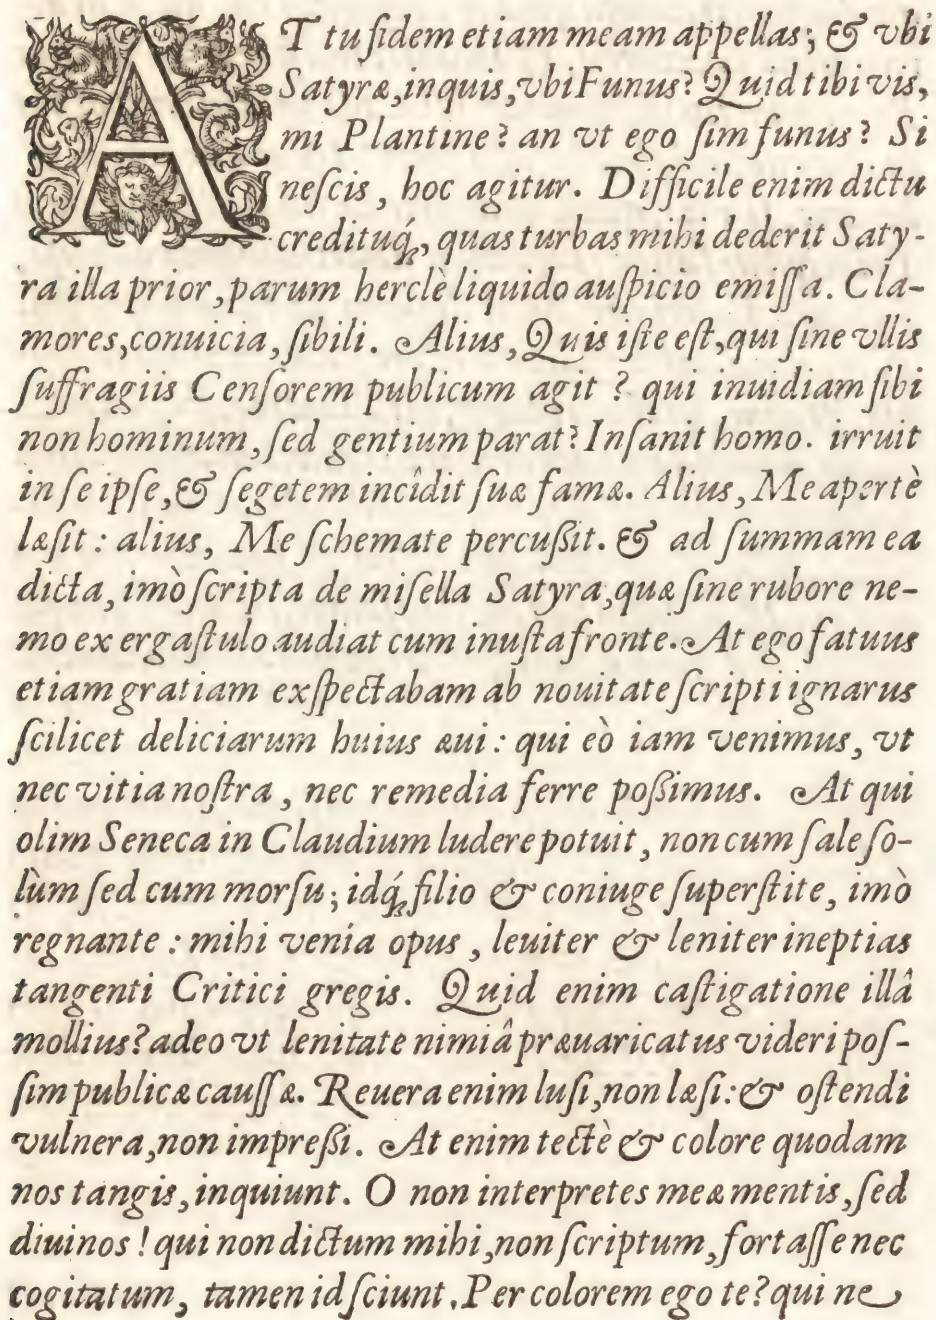 AT tu fidem etiam meam appellas; & vbi
Satyræ, inquis, vbi Funus? Quid tibi vis,
mi Plantine? an vt ego ſim funus? Si
neſcis, hoc agitur. Difficile enim dictu
credituq́;, quas turbas mihi dederit Saty-
ra illa prior, parum herclè liquido auſpicio emiſſa. Cla-
mores, conuicia, ſibili. Alius, Quis iſte eſt, qui ſine vllis
ſuffragiis Cenſorem publicum agit? qui inuidiam ſibi
non hominum, ſed gentium parat? Inſanit homo. irruit
in ſe ipſe, & ſegetem incîdit ſuæ famæ. Alius, Me apertè
læſit: alius, Me ſchemate percußit. & ad ſummam ea
dicta, imò ſcripta de miſella Satyra, quæ ſine rubore ne-
mo ex ergaſtulo audiat cum inuſta fronte. At ego fatuus
etiam gratiam exſpectabam ab nouitate ſcripti ignarus
ſcilicet deliciarum huius æui: qui eò iam venimus, vt
nec vitia noſtra, nec remedia ferre poßimus. At qui
olim Seneca in Claudium ludere potuit, non cum ſale ſo-
lùm ſed cum morſu; idq́; filio & coniuge ſuperſtite, imò
regnante: mihi venia opus, leuiter & leniter ineptias
tangenti Critici gregis. Quid enim caſtigatione illâ
mollius? adeo vt lenitate nimiâ præuaricatus videri poſ-
ſim publicæ cauſſæ. Reuera enim luſi, non læſi: & oſtendi
vulnera, non impreßi. At enim tectè & colore quodam
nos tangis, inquiunt. O non interpretes meæ mentis, ſed
diuinos! qui non dictum mihi, non ſcriptum, fortaſſe nec
cogitatum, tamen id ſciunt. Per colorem ego te? qui ne